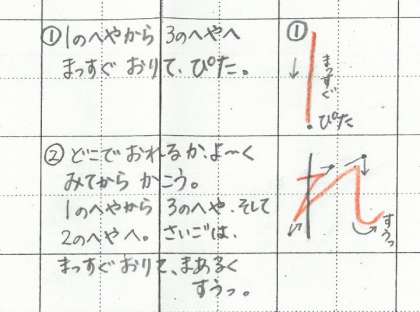 ① 1のへやから 3のへやへ
まっすぐ おりて、ぴた。
①
まっすぐ
ぴた
② どこで おれるか、よ〜く
みてから かこう。
1のへやから 3のへや、そして
2のへやへ。さいごは、
まっすぐ おりて、まあるく
すうっ。
②
すうっ